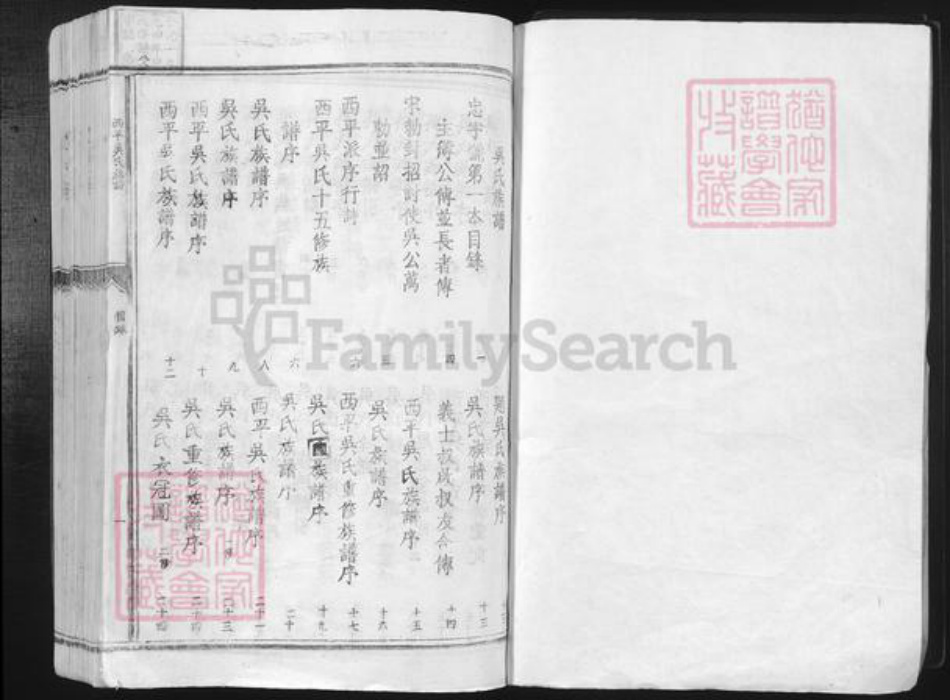 吳氏族譜
忠字號第一本目錄
主簿公傳並長者傳 四
宋勅封招討使吳公萬
勅並詔 三
西平派序行詩 六
西平吳氏十五修族
譜序 六
吳氏族譜序 八
吳氏族譜序 九
西平吳氏族譜序 十
西平吳氏族譜序 十二
吳氏族譜序
吳氏族譜序 十三
義士叔友合傳 十四
西平吳氏族譜序 十五
吳氏族譜序 十六
西平吳氏重修族譜序 十七
吳氏族譜序 十九
吳氏族譜序 二十
西平吳氏族譜序 二十一
吳氏族譜序 二十三
吳氏重修族譜序
吳氏衣冠圖 二十四
西平吳氏族譜
目錄
一
猶他家譜學會收藏
猶他家譜學會收藏
FamilySearch